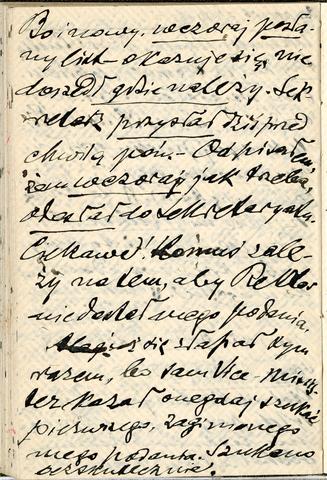 Bo i nowy, wczoraj posła-
ny list – okazuje się, nie
doszedł gdzie należy. Sek-
retarz przysłał dziś przed
chwilą pon- Odpisałem,
żem wczoraj jak trzeba,
odesłał do Sekretaryatu.
Ciekawe! Komuś zale-
ży na tem, aby Rektor
nie dostał mego podania.
się złapał tym
razem, bo sam Vice-minis-
ter kazał onegdaj szukać
pierwszego, zaginionego
mego podania. Szukano
bezskutecznie.